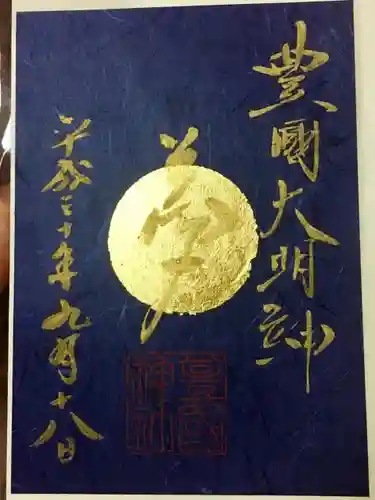 豐國大明神
夢
平成三十年九月十八日
豊国
神社